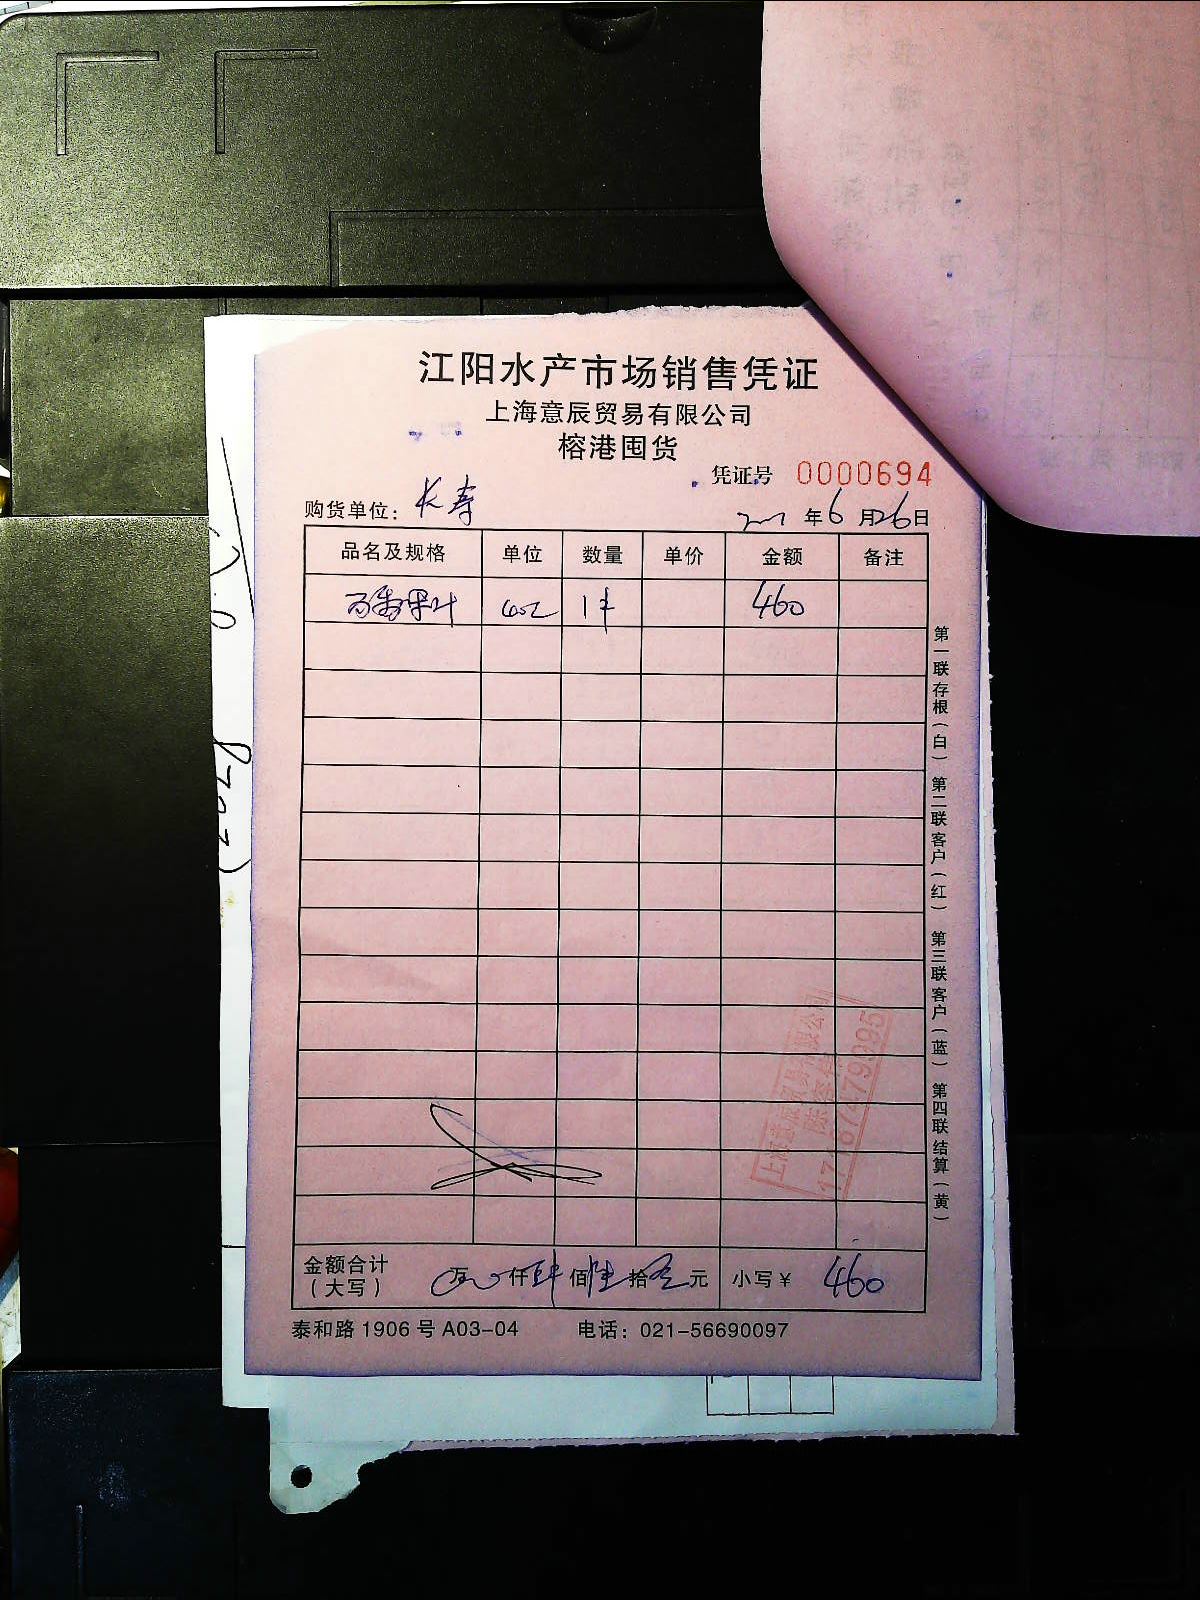 江阳水产市场销售凭证
上海意辰贸易有限公司
榕港囤货
凭证号 0000694
购货单位：长寿
年6月26日
品名及规格 单位 数量 单价 金额 备注
百香果叶 1件 460
第一联存根（白） 第二联客户（红） 第三联客户（蓝） 第四联结算（黄）
上海意辰贸易有限公司
金额合计（大写） 万 仟 肆佰陆拾零元 小写￥ 460
泰和路 1906 号 A03-04 电话：021-56690097